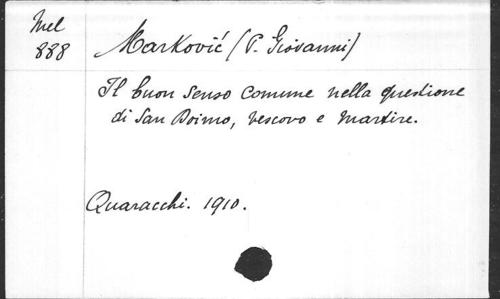 Mel
888
Marković (P. Giovanni)
Il buon senso comune nella questione
di San Doimo, vescovo e martire.
Quaracchi. 1910.